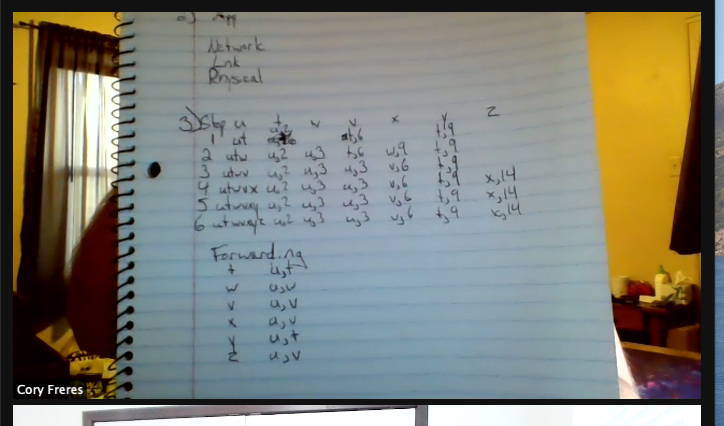 a) App
Network
Link
Physical
3) Step u t w v x y z
1 ut u,2 t,6 t,9
2 utw u,2 u,3 t,6 w,9 t,9
3 utwv u,2 u,3 u,3 v,6 t,9
4 utwvx u,2 u,3 u,3 v,6 t,9 x,14
5 utwvxy u,2 u,3 u,3 v,6 t,9 x,14
6 utwvxyz u,2 u,3 u,3 v,6 t,9 x,14
Forwarding
t u,t
w u,v
v u,v
x u,v
y u,t
z u,v
Cory Freres